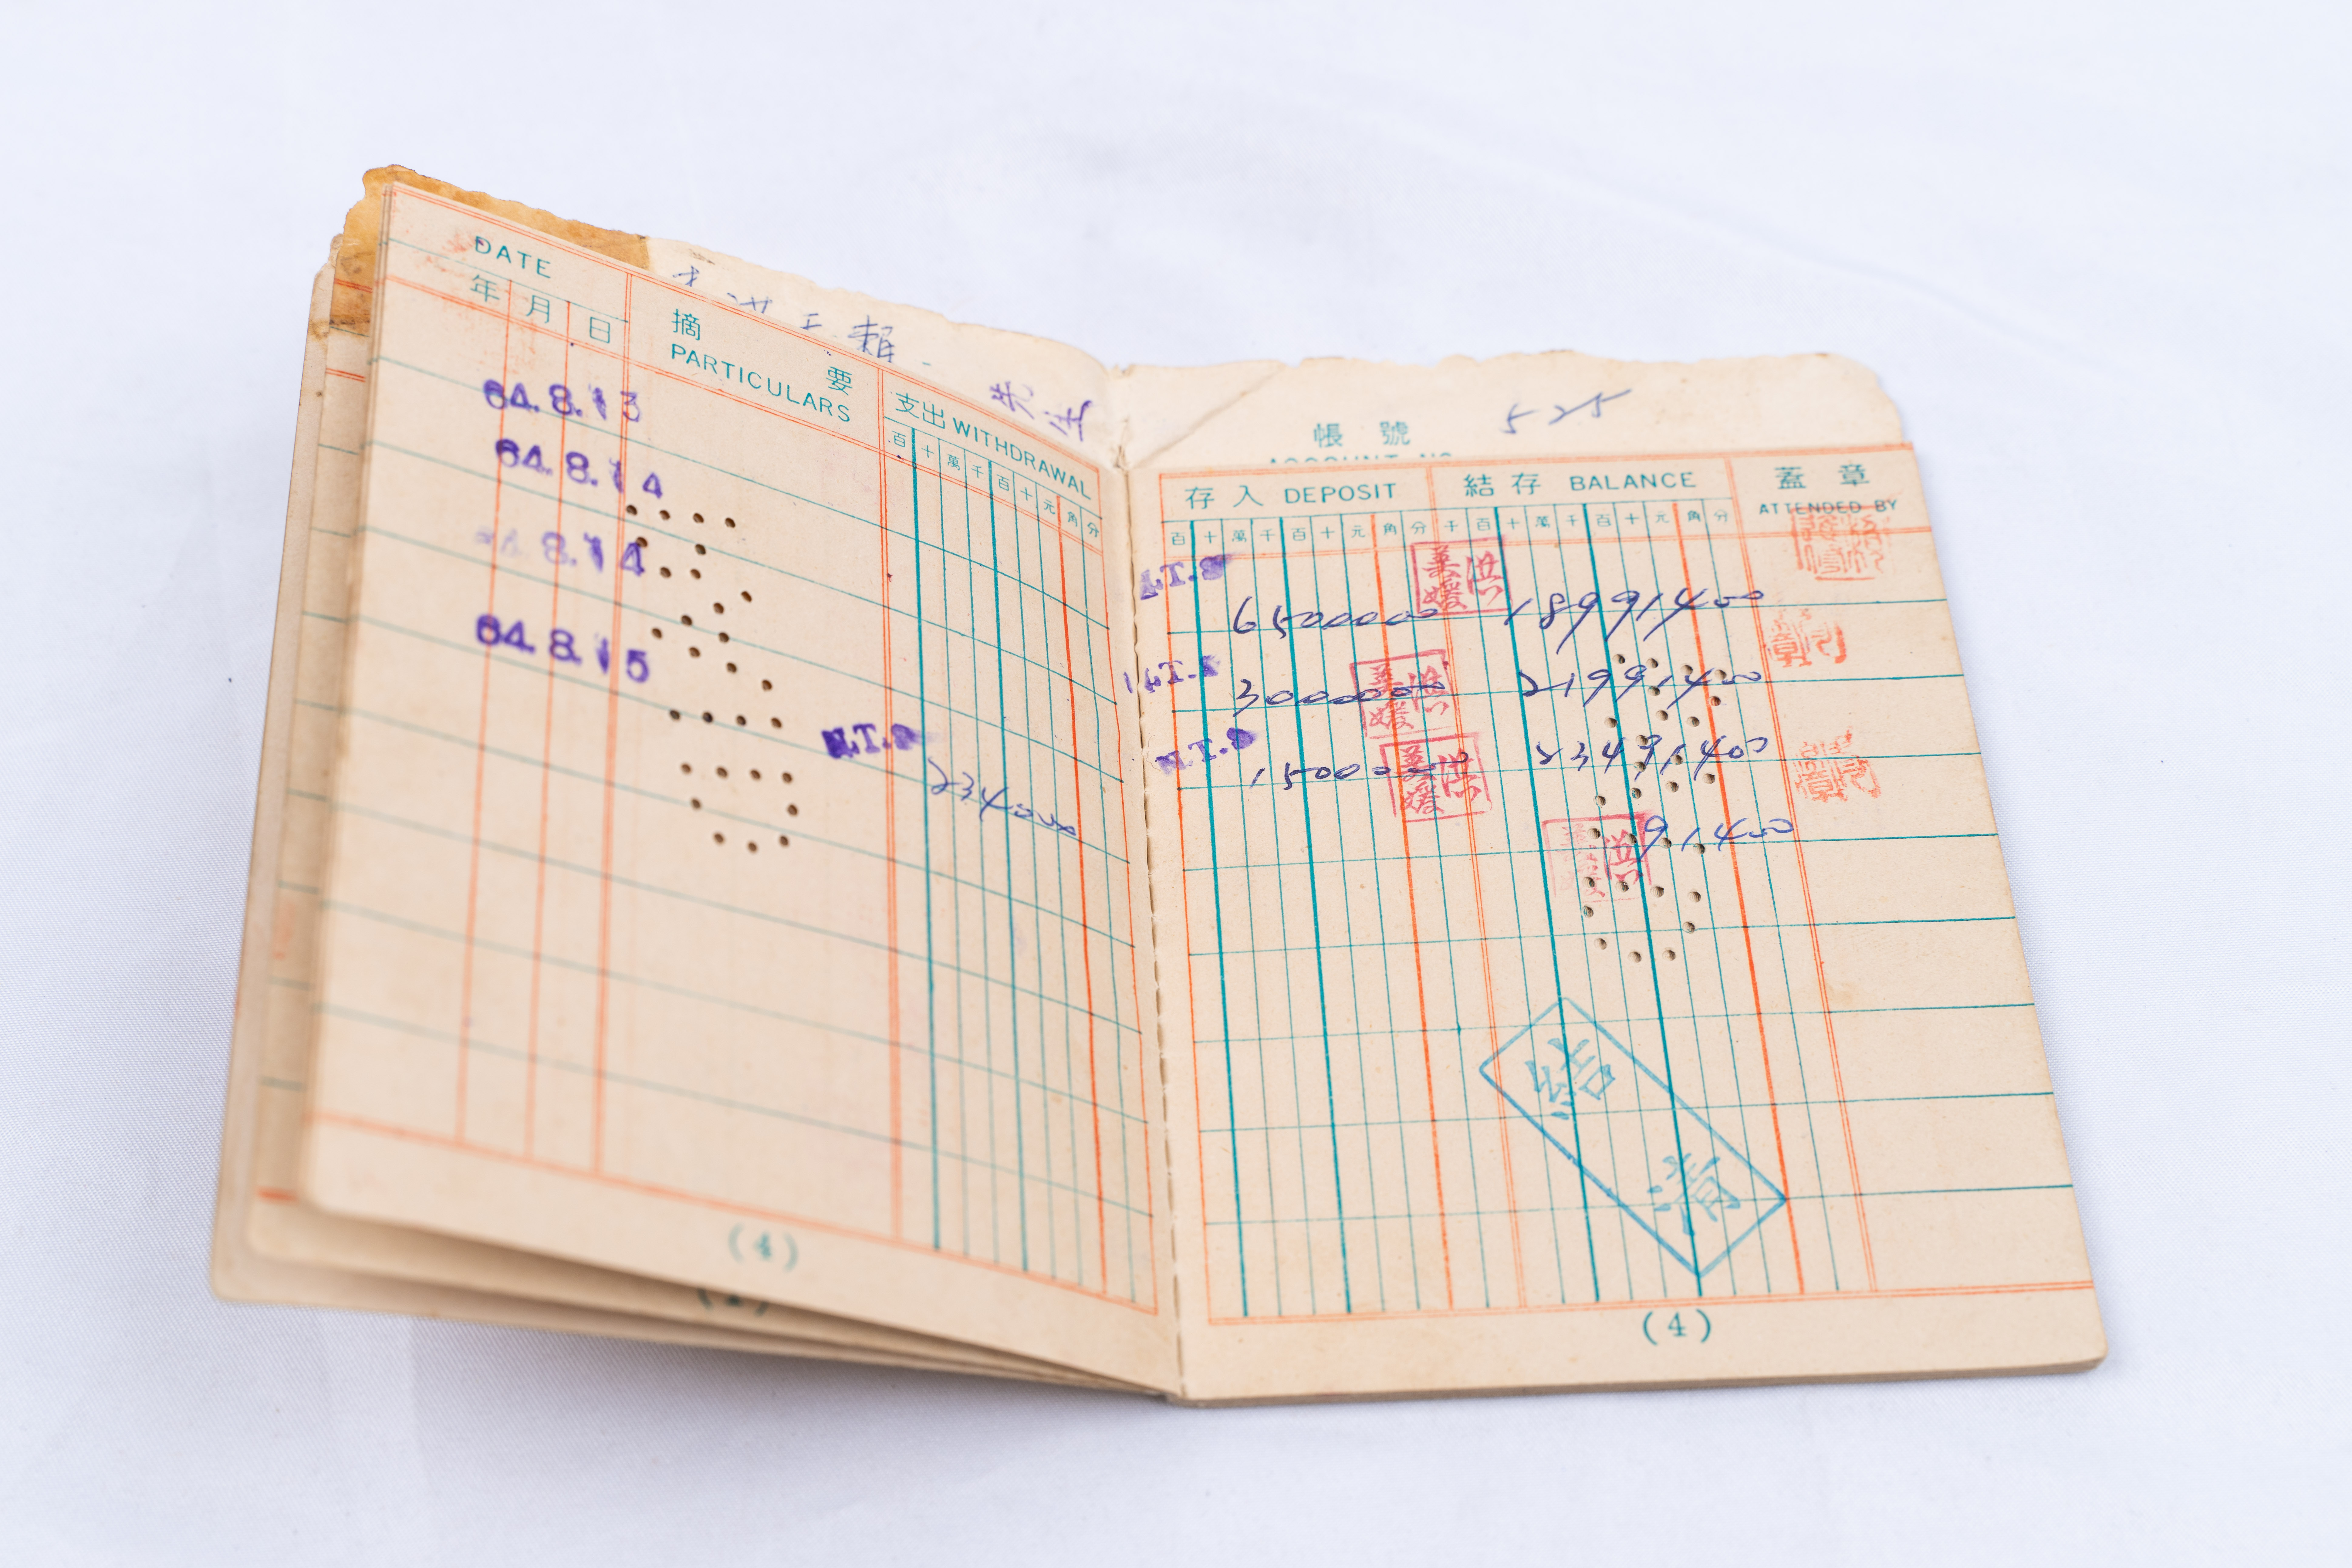 DATE
年 月 日
摘要
PARTICULARS
支出 WITHDRAWAL
百 十 萬 千 百 十 元 角 分
64.8.13
64.8.14
8.14
64.8.15
N.T.$
2340000
(4)
賴
帳號 525
存入 DEPOSIT
結存 BALANCE
蓋章
ATTENDED BY
百 十 萬 千 百 十 元 角 分
千 百 十 萬 千 百 十 元 角 分
6500000 18991400
洪美媛
3000000 21991400
洪美媛
N.T.$
1500000 23491400
洪美媛
91400
洪
結清
(4)